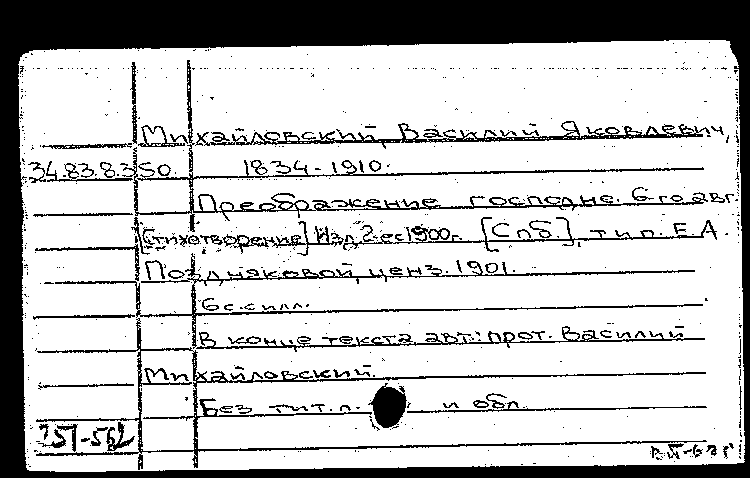 Михайловский, Василий Яковлевич,
34.83.8.350. 1834-1910.
Преображение господне 6-го авг.
[Стихотворение] Изд. 2-ес 1900г. [Спб], тип. Е.А.
Поздняковой, ценз. 1901.
6с.с илл.
В конце текста авт.: прот. Василий
Михайловский.
Без тит.л. и обл.